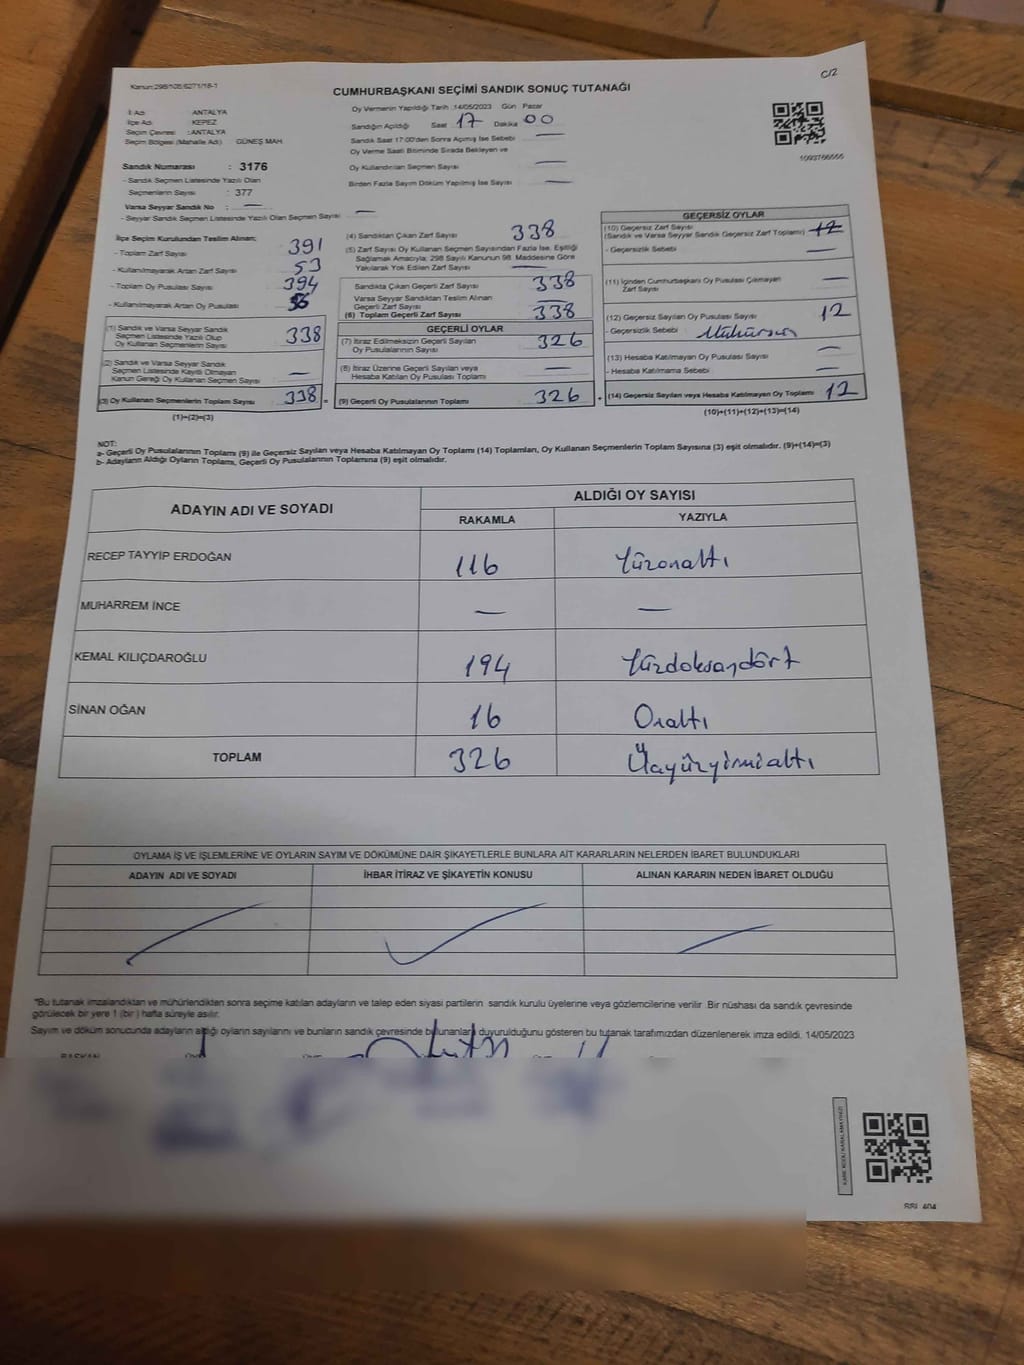 C/2
Kanun:298/105,6271/18-1
CUMHURBAŞKANI SEÇİMİ SANDIK SONUÇ TUTANAĞI
İl Adı : ANTALYA
İlçe Adı : KEPEZ
Seçim Çevresi : ANTALYA
Seçim Bölgesi (Mahalle Adı) GÜNEŞ MAH.
Sandık Numarası : 3176
- Sandık Seçmen Listesinde Yazılı Olan
Seçmenlerin Sayısı : 377
Varsa Seyyar Sandık No : —
- Seyyar Sandık Seçmen Listesinde Yazılı Olan Seçmen Sayısı —
Oy Vermenin Yapıldığı Tarih :14/05/2023 Gün Pazar
Sandığın Açıldığı Saat 17 Dakika 00
Sandık Saat 17:00'den Sonra Açılmış İse Sebebi —
Oy Verme Saati Bitiminde Sırada Bekleyen ve
Oy Kullandırılan Seçmen Sayısı —
Birden Fazla Sayım Döküm Yapılmış İse Sayısı —
İlçe Seçim Kurulundan Teslim Alınan;
- Toplam Zarf Sayısı 391
- Kullanılmayarak Artan Zarf Sayısı 53
- Toplam Oy Pusulası Sayısı 394
- Kullanılmayarak Artan Oy Pusulası 56
(1) Sandık ve Varsa Seyyar Sandık
Seçmen Listesinde Yazılı Olup
Oy Kullanan Seçmenlerin Sayısı 338
(2) Sandık ve Varsa Seyyar Sandık
Seçmen Listesinde Kayıtlı Olmayan
Kanun Gereği Oy Kullanan Seçmen Sayısı —
(3) Oy Kullanan Seçmenlerin Toplam Sayısı 338 =
(1)+(2)=(3)
(4) Sandıktan Çıkan Zarf Sayısı 338
(5) Zarf Sayısı Oy Kullanan Seçmen Sayısından Fazla İse, Eşitliği
Sağlamak Amacıyla; 298 Sayılı Kanunun 98. Maddesine Göre
Yakılarak Yok Edilen Zarf Sayısı —
Sandıkta Çıkan Geçerli Zarf Sayısı 338
Varsa Seyyar Sandıktan Teslim Alınan
Geçerli Zarf Sayısı —
(6) Toplam Geçerli Zarf Sayısı 338
GEÇERLİ OYLAR
(7) İtiraz Edilmeksizin Geçerli Sayılan
Oy Pusulalarının Sayısı 326
(8) İtiraz Üzerine Geçerli Sayılan veya
Hesaba Katılan Oy Pusulası Toplamı —
(9) Geçerli Oy Pusulalarının Toplamı 326 +
GEÇERSİZ OYLAR
(10) Geçersiz Zarf Sayısı
(Sandık ve Varsa Seyyar Sandık Geçersiz Zarf Toplamı) 12
- Geçersizlik Sebebi —
(11) İçinden Cumhurbaşkanı Oy Pusulası Çıkmayan
Zarf Sayısı —
(12) Geçersiz Sayılan Oy Pusulası Sayısı 12
- Geçersizlik Sebebi Mühürsün
(13) Hesaba Katılmayan Oy Pusulası Sayısı —
- Hesaba Katılmama Sebebi —
(14) Geçersiz Sayılan veya Hesaba Katılmayan Oy Toplamı 12
(10)+(11)+(12)+(13)=(14)
NOT:
a- Geçerli Oy Pusulalarının Toplamı (9) ile Geçersiz Sayılan veya Hesaba Katılmayan Oy Toplamı (14) Toplamları, Oy Kullanan Seçmenlerin Toplam Sayısına (3) eşit olmalıdır. (9)+(14)=(3)
b- Adayların Aldığı Oyların Toplamı, Geçerli Oy Pusulalarının Toplamına (9) eşit olmalıdır.
ADAYIN ADI VE SOYADI ALDIĞI OY SAYISI
RAKAMLA YAZIYLA
RECEP TAYYİP ERDOĞAN 116 Yüzonaltı
MUHARREM İNCE — —
KEMAL KILIÇDAROĞLU 194 Yüzdoksandört
SİNAN OĞAN 16 Onaltı
TOPLAM 326 Üçyüzyirmialtı
OYLAMA İŞ VE İŞLEMLERİNE VE OYLARIN SAYIM VE DÖKÜMÜNE DAİR ŞİKAYETLERLE BUNLARA AİT KARARLARIN NELERDEN İBARET BULUNDUKLARI
ADAYIN ADI VE SOYADI İHBAR İTİRAZ VE ŞİKAYETİN KONUSU ALINAN KARARIN NEDEN İBARET OLDUĞU
"Bu tutanak imzalandıktan ve mühürlendikten sonra seçime katılan adayların ve talep eden siyasi partilerin sandık kurulu üyelerine veya gözlemcilerine verilir. Bir nüshası da sandık çevresinde
görülecek bir yere 1 (bir) hafta süreyle asılır.
Sayım ve döküm sonucunda adayların aldığı oyların sayılarını ve bunların sandık çevresinde bulunanlara duyurulduğunu gösteren bu tutanak tarafımızdan düzenlenerek imza edildi. 14/05/2023
BAŞKAN